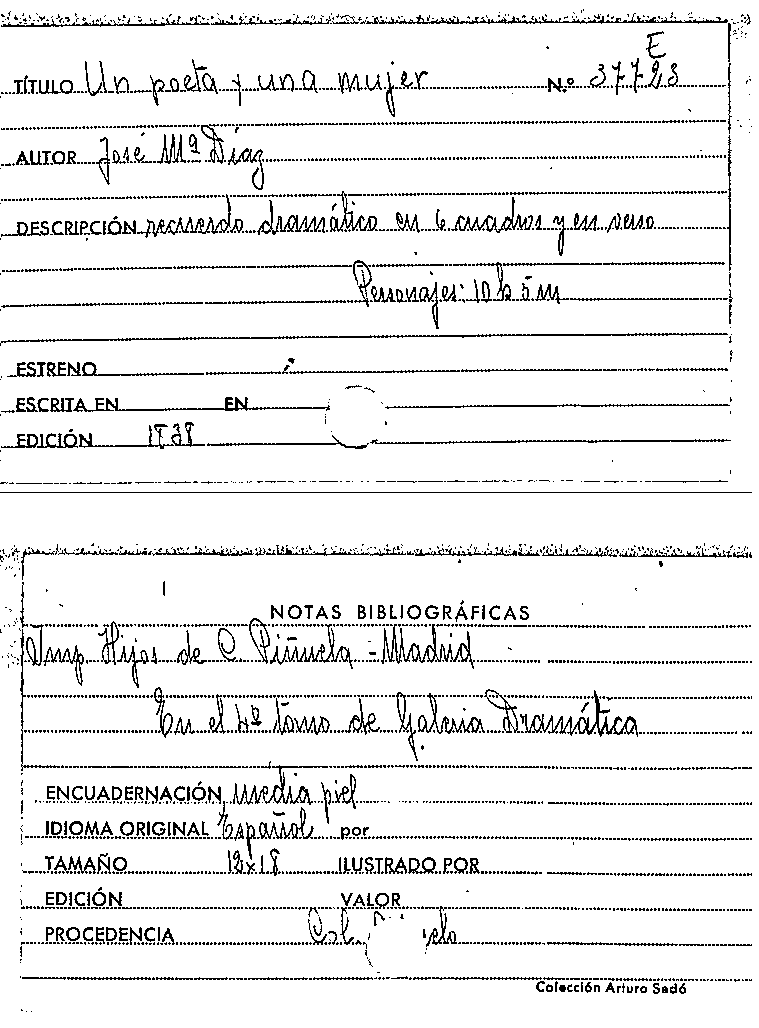 E
TÍTULO Un poeta y una mujer N.º 37723
AUTOR José Mª Díaz
DESCRIPCIÓN recuerdo dramático en 6 cuadros y en verso
Personajes: 10 h 5 m
ESTRENO
ESCRITA EN EN
EDICIÓN 1838
NOTAS BIBLIOGRÁFICAS
Imp. Hijos de C. Piñuela - Madrid
En el 4º tomo de Galeria Dramática
ENCUADERNACIÓN media piel
IDIOMA ORIGINAL Español por
TAMAÑO 12x18 ILUSTRADO POR
EDICIÓN VALOR
PROCEDENCIA
Colección Arturo Sedó